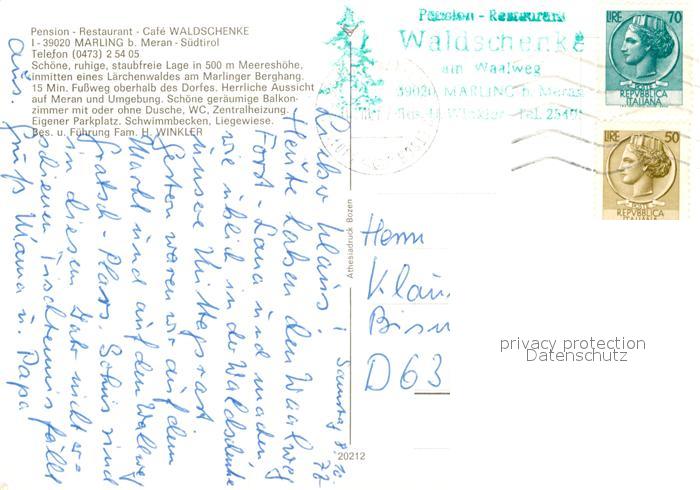 Pension - Restaurant - Café WALDSCHENKE
I - 39020 MARLING b. Meran - Südtirol
Telefon (0473) 2 54 05.
Schöne, ruhige, staubfreie Lage in 500 m Meereshöhe,
inmitten eines Lärchenwaldes am Marlinger Berghang.
15 Min. Fußweg oberhalb des Dorfes. Herrliche Aussicht
auf Meran und Umgebung. Schöne geräumige Balkon-
zimmer mit oder ohne Dusche, WC, Zentralheizung.
Eigener Parkplatz. Schwimmbecken, Liegewiese.
Bes. u. Führung Fam. H. WINKLER
Pension - Restaurant
Waldschenke
am Waalweg
39020 MARLING b. Meran
Bes. H. Winkler Tel. 2540
LIRE 70
POSTE
REPVBBLICA
ITALIANA
LIRE 50
POSTE
REPVBBLICA
ITALIANA
Samstag 8.10.
Lieber Klaus!
Heute haben den Waalweg
Forst - Lana und machen
wie üblich in der Waldschenke
unser Mittagsrast
Gestern waren wir auf dem
Markt und auf den Wallweg
Gratsch - Plars. Schuis sind
in diesem Jahr nicht er-
schienen Tischtennis fällt
aus. Gruß Mama u. Papa
Athesiadruck Bozen
20212
Herrn
Klau
D 63
privacy protection
Datenschutz